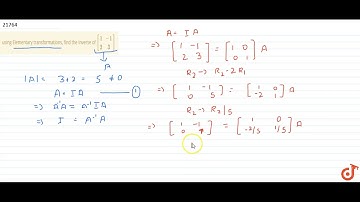 21764
using Elementary transformations, find the inverse of [1 -1
2 3]
A
|A| = 3+2 = 5 ≠ 0
A = IA — ①
⇒ A⁻¹A = A⁻¹IA
⇒ I = A⁻¹A
A = IA
⇒ [1 -1
2 3] = [1 0
0 1] A
R₂ → R₂ - 2R₁
⇒ [1 -1
0 5] = [1 0
-2 1] A
R₂ → R₂/5
⇒ [1 -1
0 1] = [1 0
-2/5 1/5] A